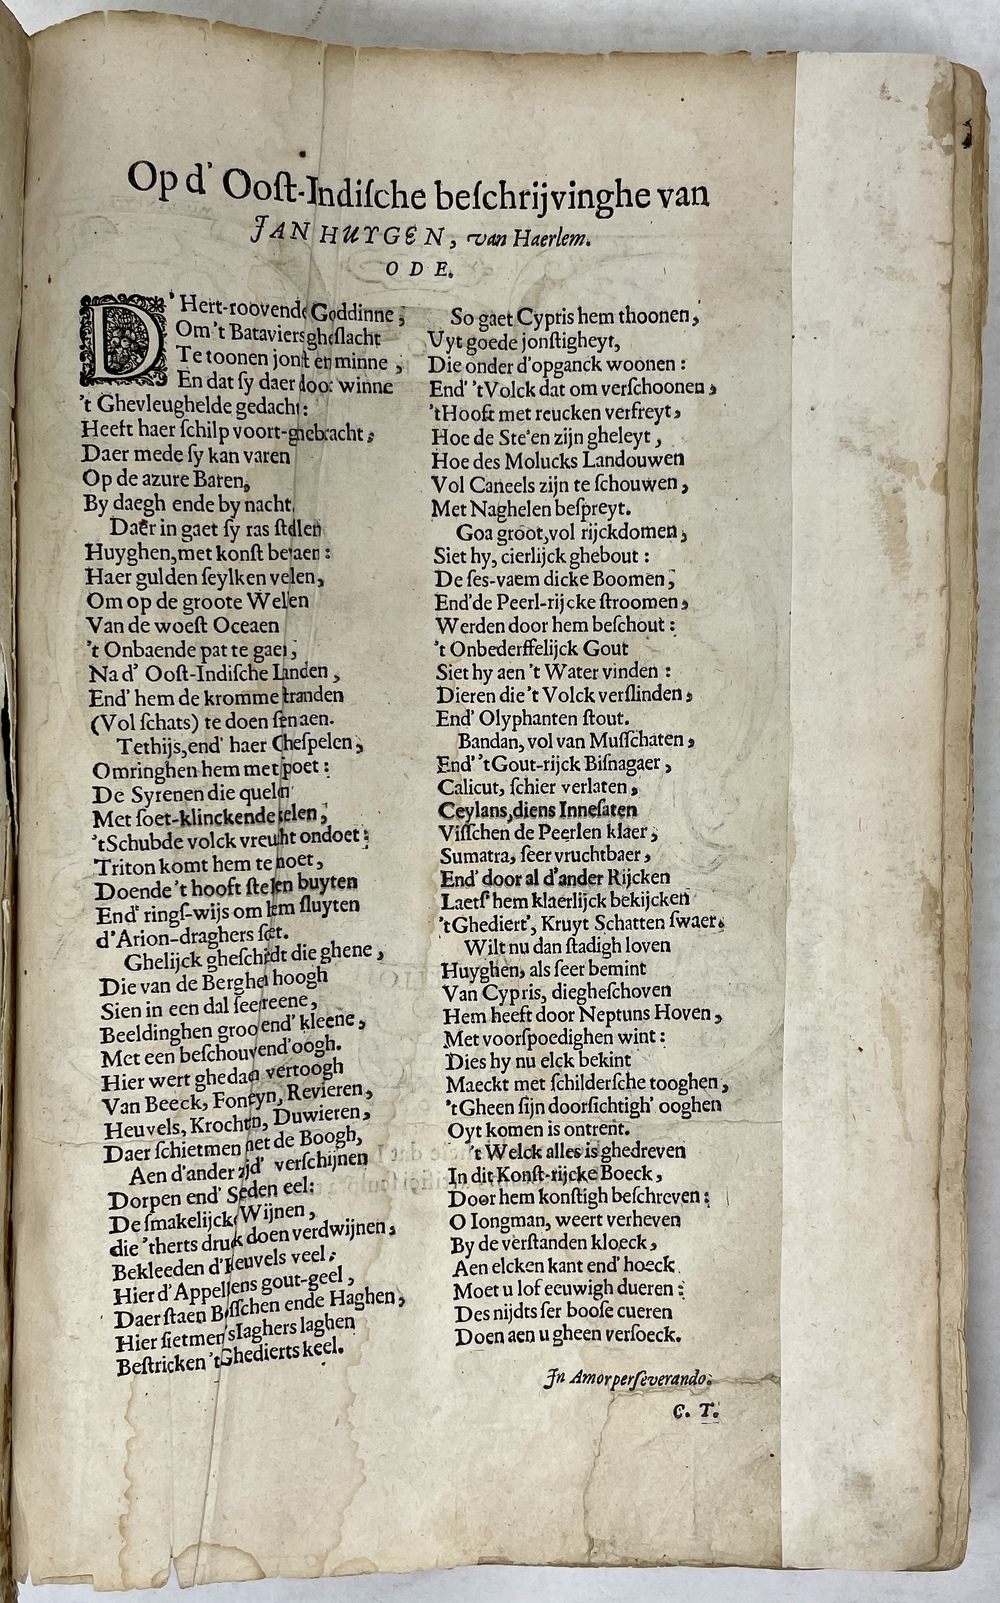 Op d' Ooſt-Indiſche beſchrijvinghe van
JAN HUYGEN, van Haerlem.
ODE.
D' Hert-roovende Goddinne,
Om't Bataviers gheſlacht
Te toonen jonſt en minne,
En dat ſy daer door winne
't Ghevleughelde gedacht:
Heeft haer ſchilp voort-ghebracht,
Daer mede ſy kan varen
Op de azure Baren,
By daegh ende by nacht.
Daer in gaet ſy ras ſtellen
Huyghen, met konſt belaen:
Haer gulden ſeylken velen,
Om op de groote Wellen
Van de woeſt Oceaen
't Onbaende pat te gaen;
Na d' Ooſt-Indiſche Landen,
End' hem de kromme ſtranden
(Vol ſchats) te doen ſien aen.
Tethijs, end' haer Gheſpelen,
Omringhen hem met ſpoet:
De Syrenen die quelen
Met ſoet-klinckende kelen,
't Schubde volck vreucht ondoet:
Triton komt hem te moet,
Doende 't hooft ſteken buyten
End' ringſ-wijs om hem ſluyten
d'Arion-draghers ſoet.
Ghelijck gheſchiedt die ghene,
Die van de Berghen hoogh
Sien in een dal ſeer reene,
Beeldinghen groot end' kleene,
Met een beſchouwend' oogh.
Hier wert ghedaen vertoogh
Van Beeck, Fonteyn, Revieren,
Heuvels, Krochten, Duwieren,
Daer ſchietmen met de Boogh,
Aen d'ander zijd' verſchijnen
Dorpen end' Steden eel:
De ſmakelijcke Wijnen,
die 'therts druk doen verdwijnen,
Bekleeden d'Heuvels veel;
Hier d'Appellens gout-geel,
Daer ſtaen Boſſchen ende Haghen,
Hier ſietmen 's Iaghers laghen
Beſtricken 't Ghedierts keel.
So gaet Cypris hem thoonen,
Uyt goede jonſtigheyt,
Die onder d'opganck woonen:
End' 't Volck dat om verſchoonen,
't Hooft met reucken verfreyt,
Hoe de Ste'en zijn gheleyt,
Hoe des Molucks Landouwen
Vol Caneels zijn te ſchouwen,
Met Naghelen beſpreyt.
Goa groot, vol rijckdomen,
Siet hy, cierlijck ghebout:
De ſes-vaem dicke Boomen,
End' de Peerl-rijcke ſtroomen,
Werden door hem beſchout:
't Onbederffelijck Gout
Siet hy aen 't Water vinden:
Dieren die 't Volck verſlinden,
End' Olyphanten ſtout.
Bandan, vol van Muſſchaten,
End' 't Gout-rijck Biſnagaer,
Calicut, ſchier verlaten,
Ceylans, diens Inneſaten
Viſſchen de Peerlen klaer,
Sumatra, ſeer vruchtbaer,
End' door al d'ander Rijcken
Laetſ' hem klaerlijck bekijcken
't Ghediert', Kruyt Schatten ſwaer.
Wilt nu dan ſtadigh loven
Huyghen, als ſeer bemint
Van Cypris, die gheſchoven
Hem heeft door Neptuns Hoven,
Met voorſpoedighen wint:
Dies hy nu elck bekint
Maeckt met ſchilderſche tooghen,
't Gheen ſijn doorſichtigh' ooghen
Oyt komen is ontrent.
't Welck alles is ghedreven
In dit Konſt-rijcke Boeck,
Door hem konſtigh beſchreven:
O Iongman, weert verheven
By de verſtanden kloeck,
Aen elcken kant end' hoeck
Moet u lof eeuwigh dueren:
Des nijdts ſer booſe cueren
Doen aen u gheen verſoeck.
In Amor perſeverando.
C. T.